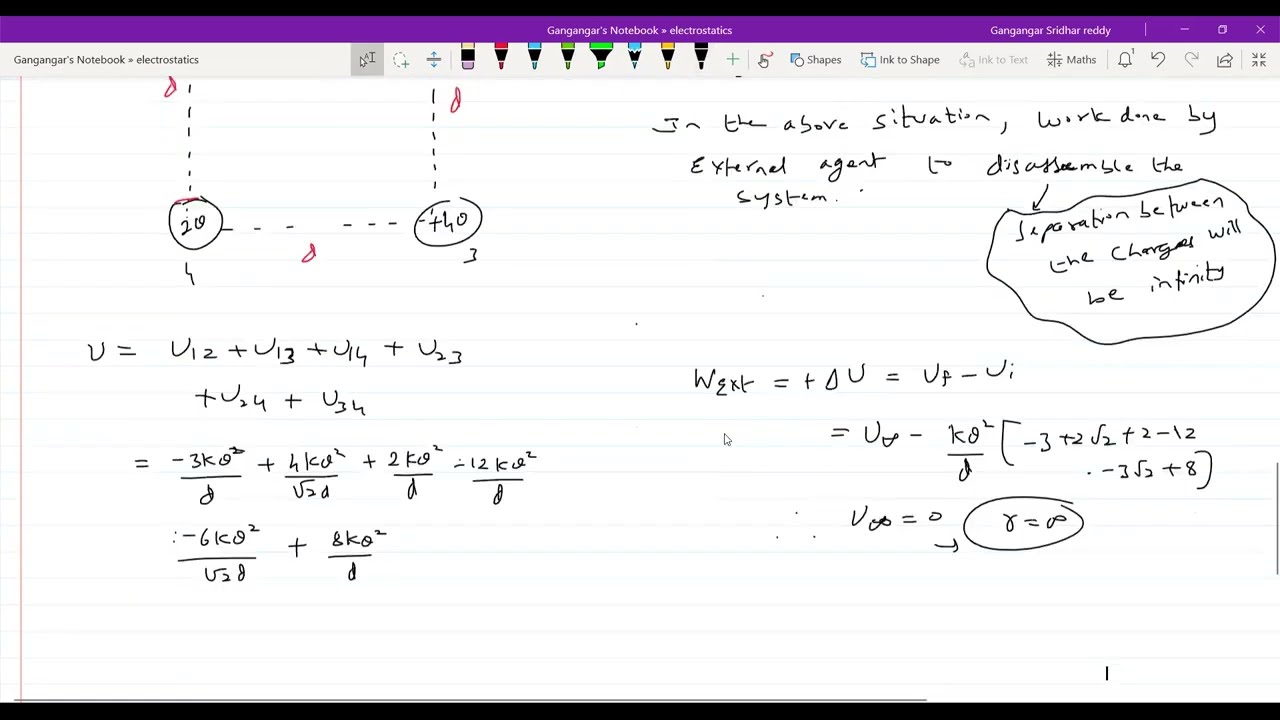 Gangangar's Notebook » electrostatics
Gangangar Sridhar reddy
Gangangar's Notebook » electrostatics
Shapes
Ink to Shape
Ink to Text
Maths
d
d
2Q
+4Q
d
4
3
In the above situation, work done by
External agent to disassemble the
system.
Separation between
the charges will
be infinity
U = U12 + U13 + U14 + U23
+ U24 + U34
= -3kQ²/d + 4kQ²/√2d + 2kQ²/d -12kQ²/d
-6kQ²/√2d + 8kQ²/d
WExt = +ΔU = Uf - Ui
= U∞ - kQ²/d [-3 + 2√2 + 2 - 12
-3√2 + 8]
U∞ = 0 → r = ∞